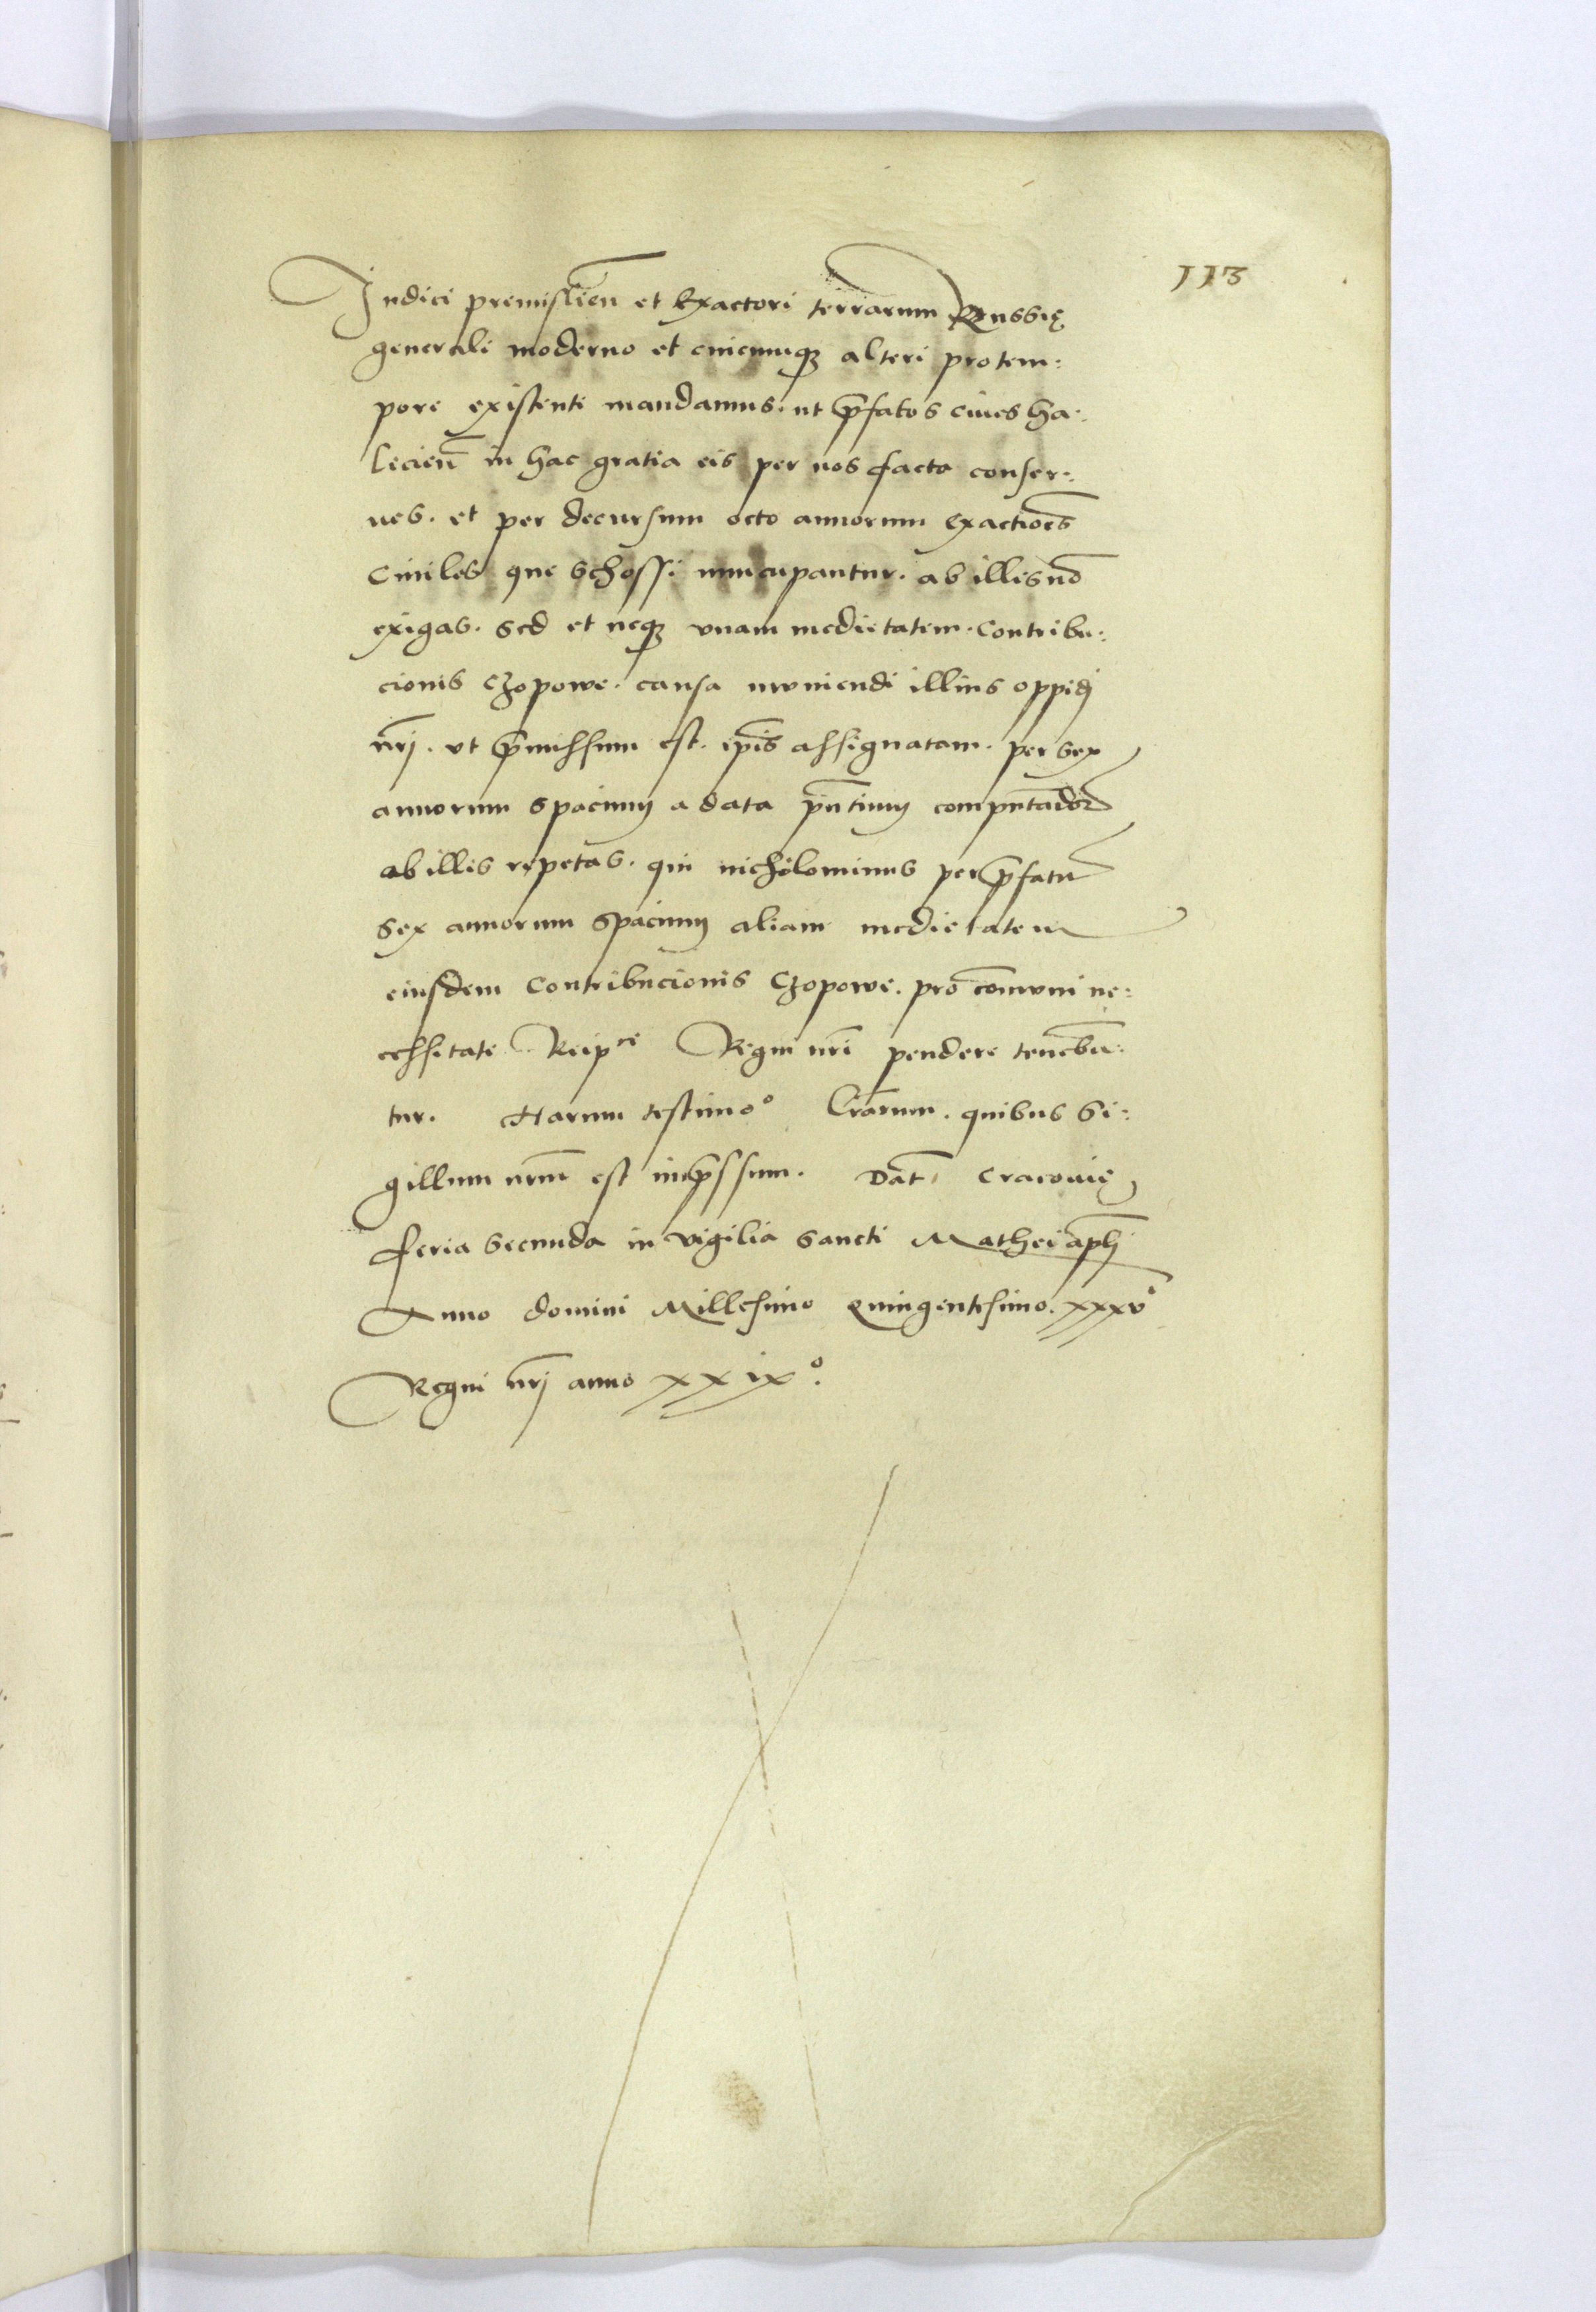 113
Iudici premislien̄ et Exactori terrarum Russię
generali moderno et cuicumqꝫ alteri protem:
pore existenti mandamus. ut p̄fatos ciues ha:
licien̄ in hac gratia eis per nos facta conser:
ues. et per decursum octo annorum exactioēs
Ciuiles que schossi nuncupantur. ab illis nō
exigas. sed et neqꝫ vnam medietatem. Contribu:
cionis czopowe. causa muniendi illius oppidj
nr̄j. vt p̄missum est. ip̄is assignatam. per sex
annorum spacium a data pn̄tium computādor
ab illis repetas. qui nichilominus per p̄fatū
sex annorum spacium aliam medietatem
eiusdem Contribucionis Czopowe. pro cōmuni ne:
cessitate Reipce Regni nr̄i pendere tenebū:
tur. Harum testimo° Lr̄arum. quibus si:
gillum nr̄m est imp̄ssum. Dat̄ Cracouię
feria secunda in vigilia sancti Mathei ap̄lj
Anno domini Millesimo quingentesimo. xxxv°
Regni nr̄j anno xxix°.